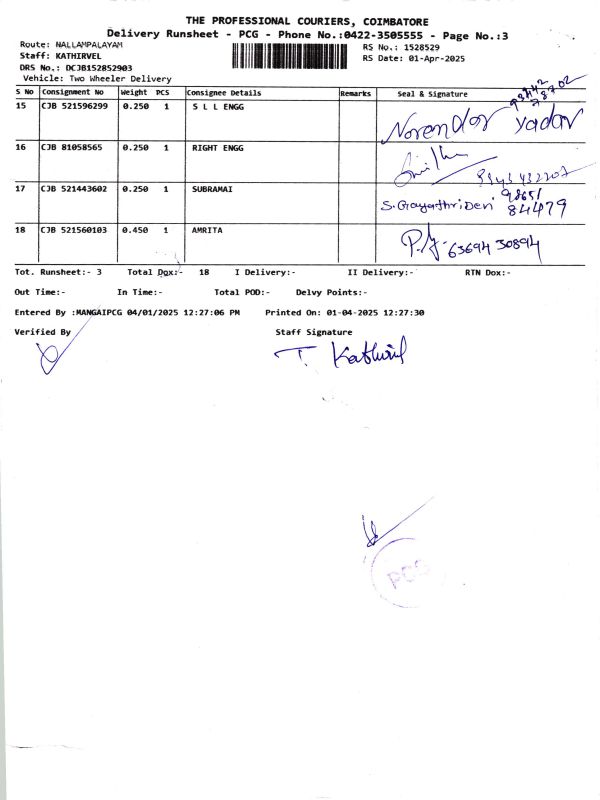 THE PROFESSIONAL COURIERS, COIMBATORE
Delivery Runsheet - PCG - Phone No.:0422-3505555 - Page No.:3
Route: NALLAMPALAYAM
RS No.: 1528529
Staff: KATHIRVEL
RS Date: 01-Apr-2025
DRS No.: DCJB152852903
Vehicle: Two Wheeler Delivery
S No Consignment No Weight PCS Consignee Details Remarks Seal & Signature
15 CJB 521596299 0.250 1 S L L ENGG
Narendar Yadav
16 CJB 81058565 0.250 1 RIGHT ENGG
17 CJB 521443602 0.250 1 SUBRAMAI
S. Gayathri Devi 98651 84479
18 CJB 521560103 0.450 1 AMRITA
63694 30894
Tot. Runsheet:- 3 Total Dox:- 18 I Delivery:- II Delivery:- RTN Dox:-
Out Time:- In Time:- Total POD:- Delvy Points:-
Entered By :MANGAIPCG 04/01/2025 12:27:06 PM Printed On: 01-04-2025 12:27:30
Verified By Staff Signature
PCG